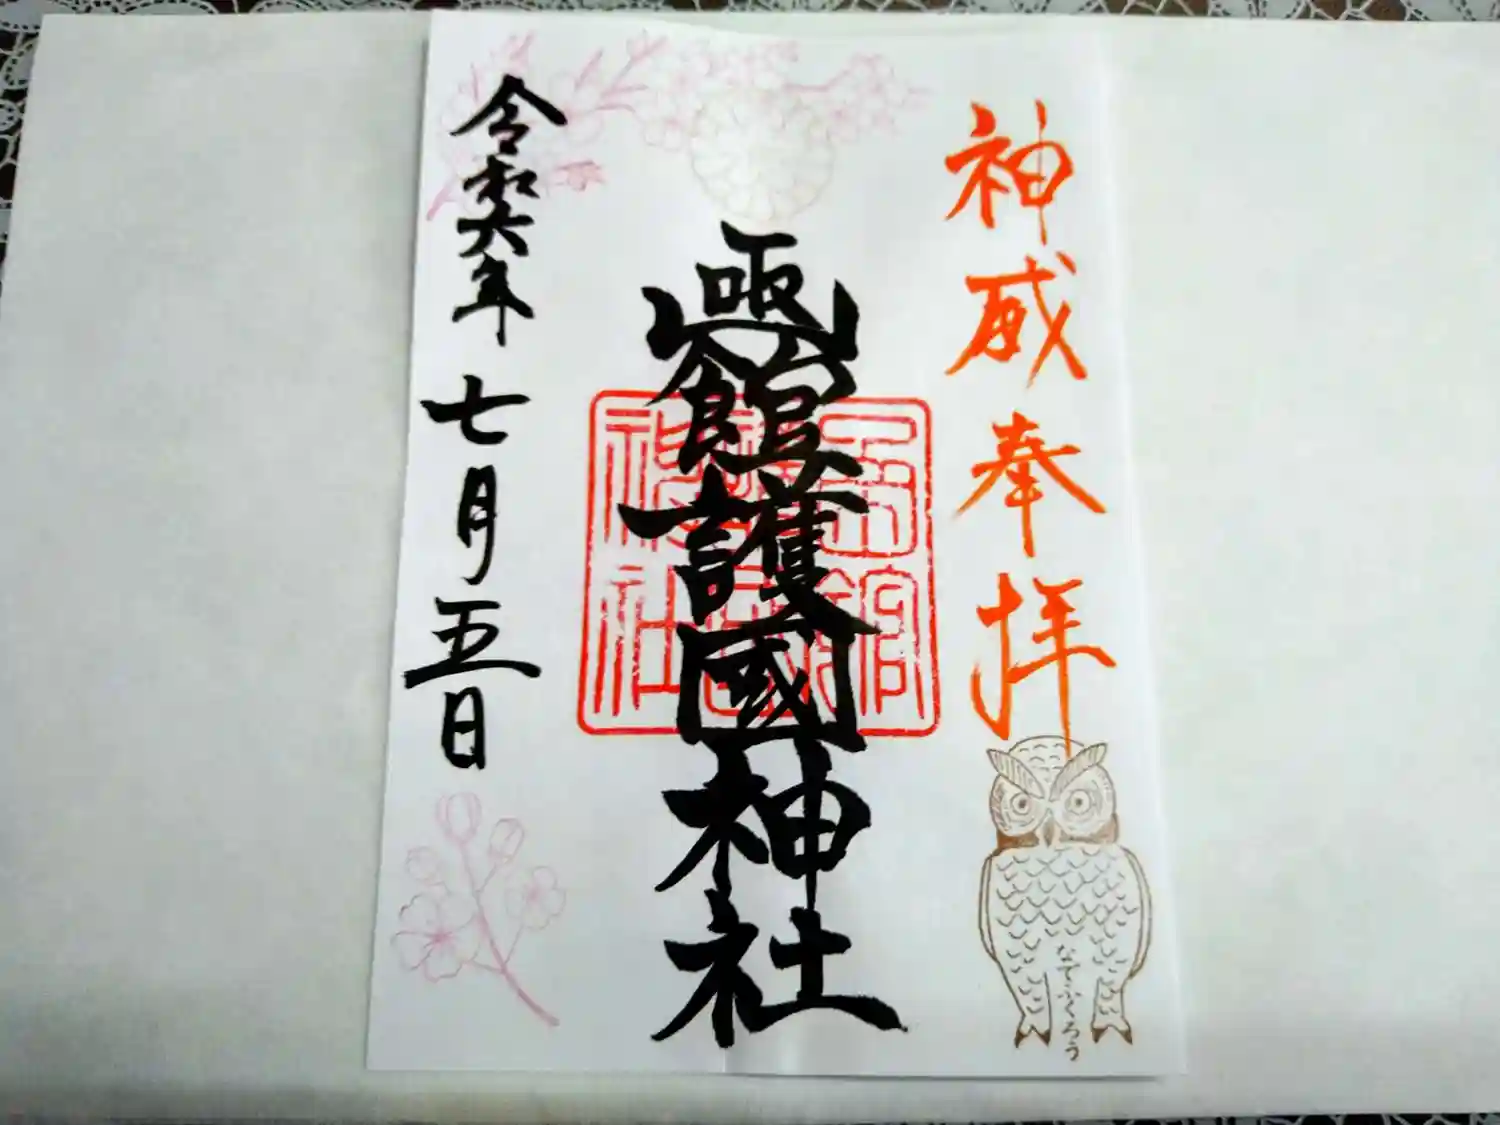 神威奉拝
凾館護國神社
令和六年七月五日
函館
護國
神社
なでふくろう